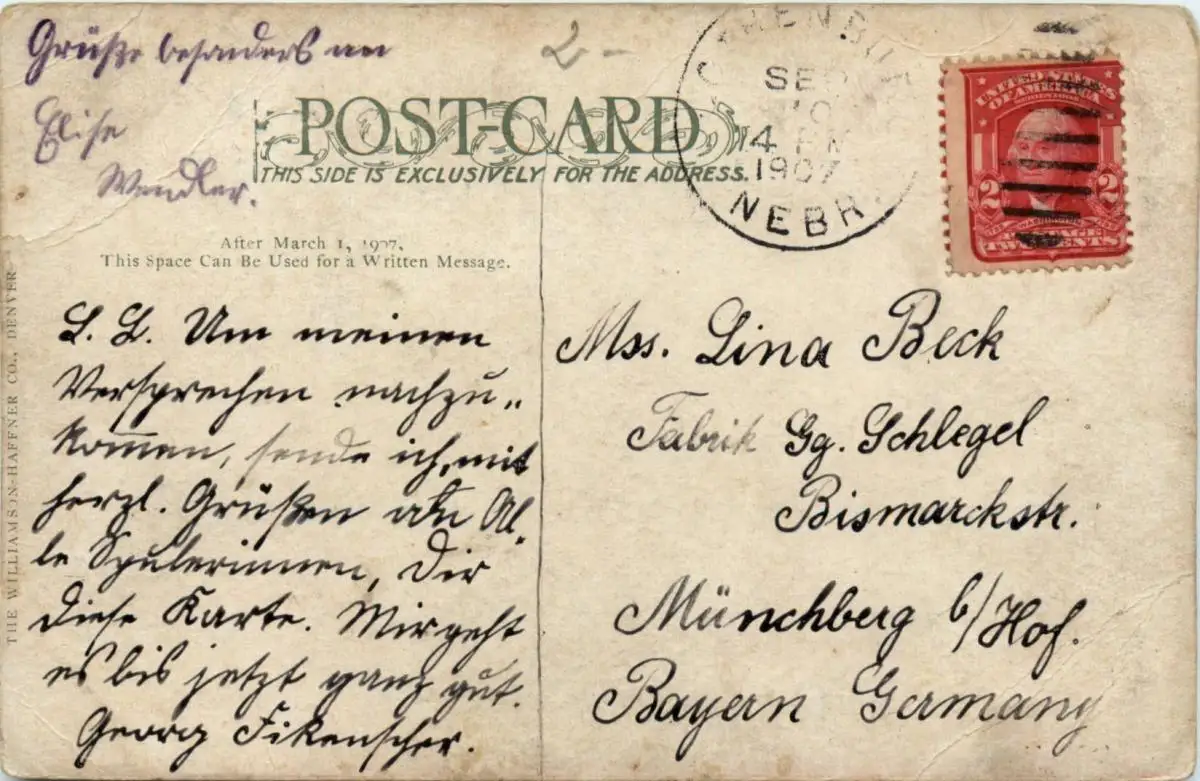 Grüße besonders an
Elise
Wendler.
2-
POST-CARD
THIS SIDE IS EXCLUSIVELY FOR THE ADDRESS.
SEP
10
4 PM
1907
NEBR.
UNITED STATES
OF AMERICA
2 2
WASHINGTON
TWO CENTS
After March 1, 1907,
This Space Can Be Used for a Written Message.
THE WILLIAMSON-HAFFNER CO., DENVER
L. L. Um meinen
Versprechen nachzu„
kommen, sende ich, mit
herzl. Grüßen an Al„
le Spulerinnen, Dir
diese Karte. Mir geht
es bis jetzt ganz gut.
Georg Fikenscher.
Mss. Lina Beck
Fabrik Gg. Schlegel
Bismarckstr.
Münchberg b/Hof.
Bayern Germany